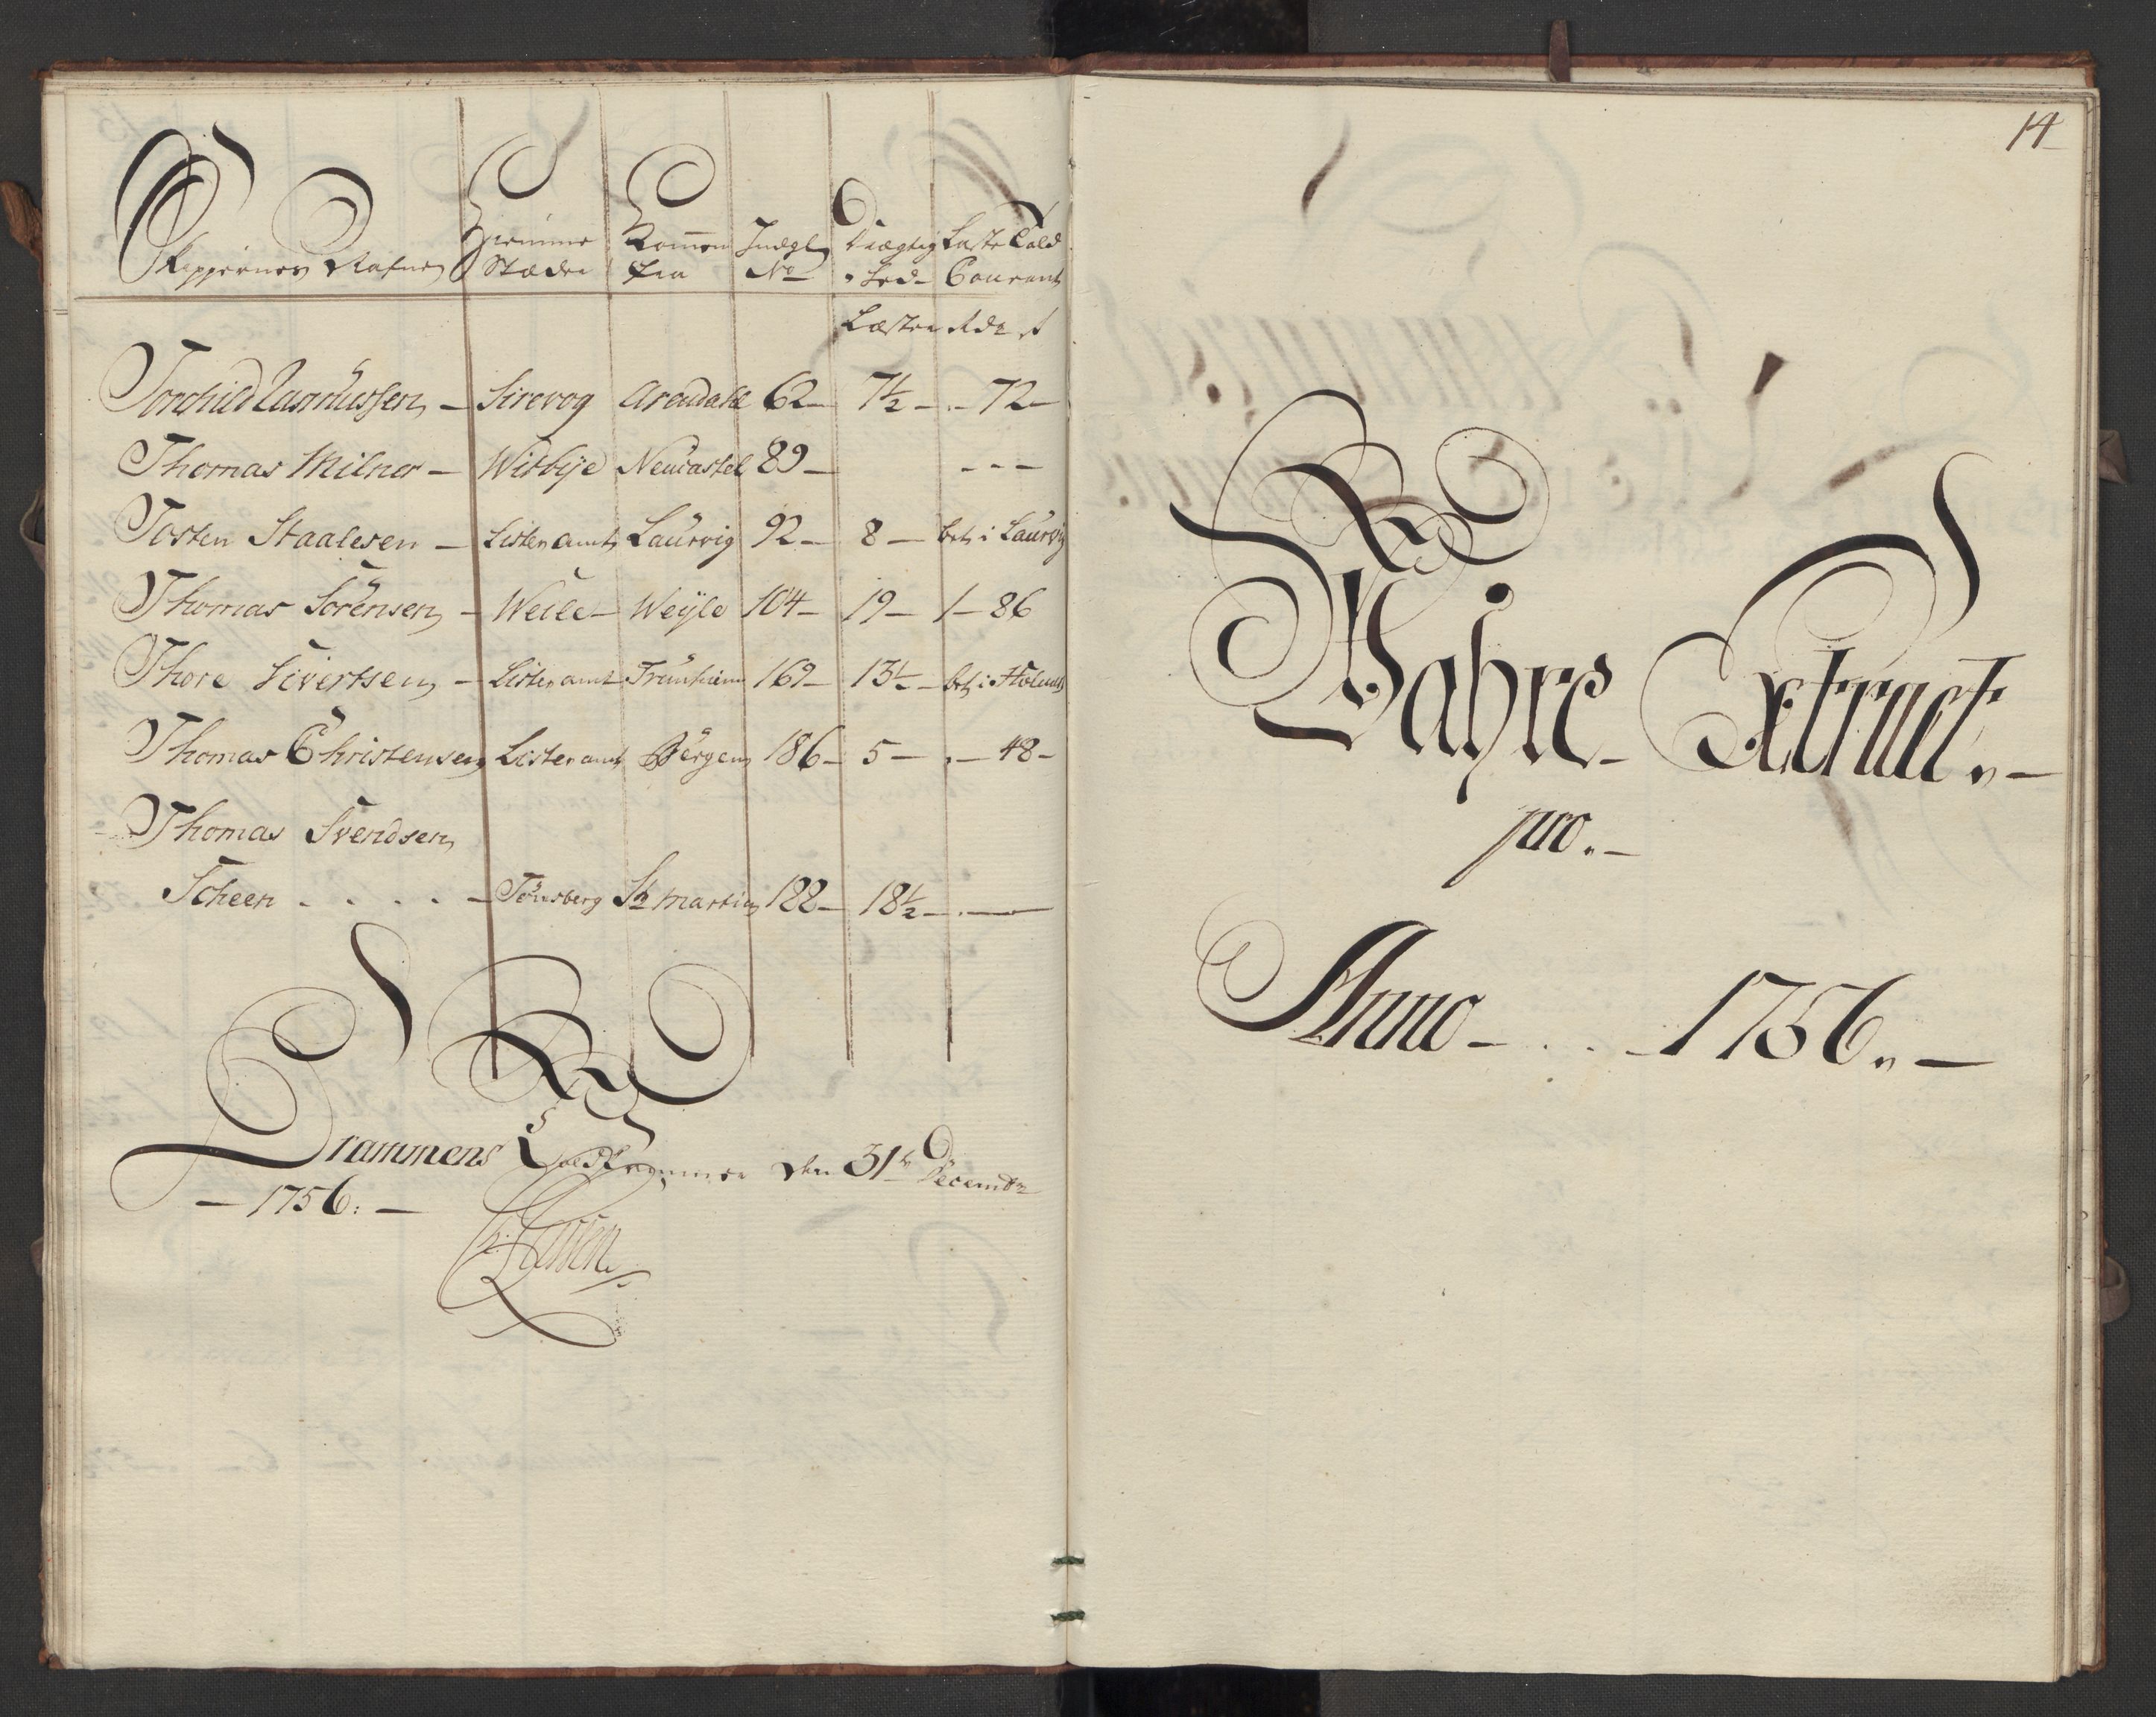 Skippernes Nafne Hiemme Stæder Kommen fra Indgl No Drægtig hed Læste Told Courant
Læster Rdr s
Torchild Rasmussen – Sirevog Arendahl 62 – 7½ – . – 72 –
Thomas Milner – Witbÿe Neucastel 89 – - - -
Tosten Staalesen – Lister amt Laurvig 92 – 8 – bet: i Laurvig
Thomas Sörensen – Weile – Weÿle 104 – 19 – 1 – 86
Thore Sivertsen – Lister amt Trunhiem 169 – 13½ – bet: i Holmst
Thomas Christensen Lister amt Bergen 186 – 5 – . – 48 –
Thomas Svendsen
Scheen . . . . – Tönsberg St Martin 188 – 18½ – . –
Drammens Toldkammer den 31te Decembr
– 1756: –
14
Wahre Extract. –
pro. –
Anno – . . – 1756. –